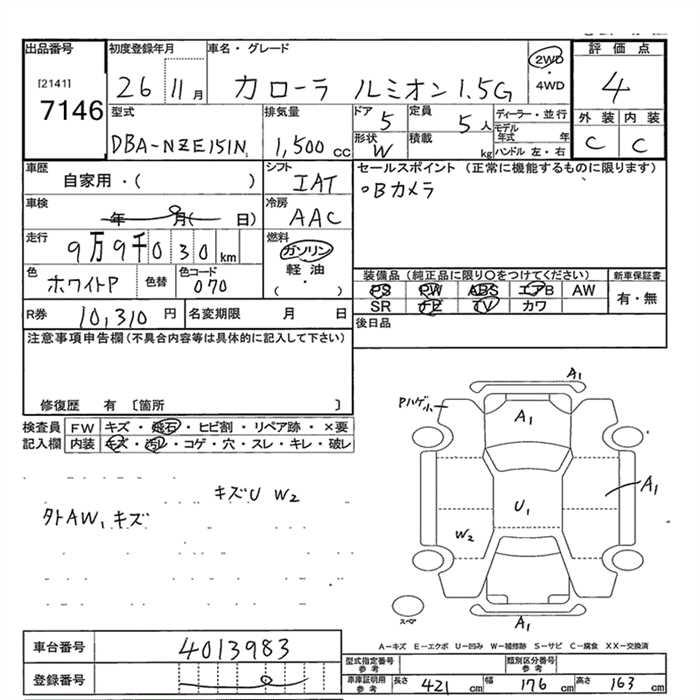 出品番号 初度登録年月 車名・グレード 評価点
[2141] 7146 26 11月 カローラ ルミオン 1.5G 2WD・4WD 4
型式 排気量 ドア 5 定員 5人 ディーラー・並行 外装 内装
DBA-NZE151N 1,500cc 形状 W 積載 kg モデル年式 年 ハンドル 左・右 C C
車歴 シフト セールスポイント (正常に機能するものに限ります)
自家用・( ) IAT ○Bカメラ
車検 年 月( 日) 冷房 AAC
走行 9万9千030km 燃料 ガソリン・軽油・( )
色 ホワイトP 色替 色コード 070
装備品(純正品に限り○をつけてください) 新車保証書
PS PW ABS エアB AW 有・無
SR ナビ TV カワ
R券 10,310円 名変期限 月 日 後日品
注意事項申告欄(不具合内容等は具体的に記入して下さい)
修復歴 有 〔箇所 〕
検査員 FW キズ・飛石・ヒビ割・リペア跡・×要
記入欄 内装 キズ・汚レ・コゲ・穴・スレ・キレ・破レ
キズU W2
外AW、キズ
A1
Pハゲ小
A1
A1
U1
W2
A1
スペア
A-キズ E-エクボ U-凹み W-補修跡 S-サビ C-腐食 XX-交換済
車台番号 4013983
型式指定番号 参考 類別区分番号 参考
登録番号 車庫証明用 参考 長さ 421cm 幅 176cm 高さ 163cm